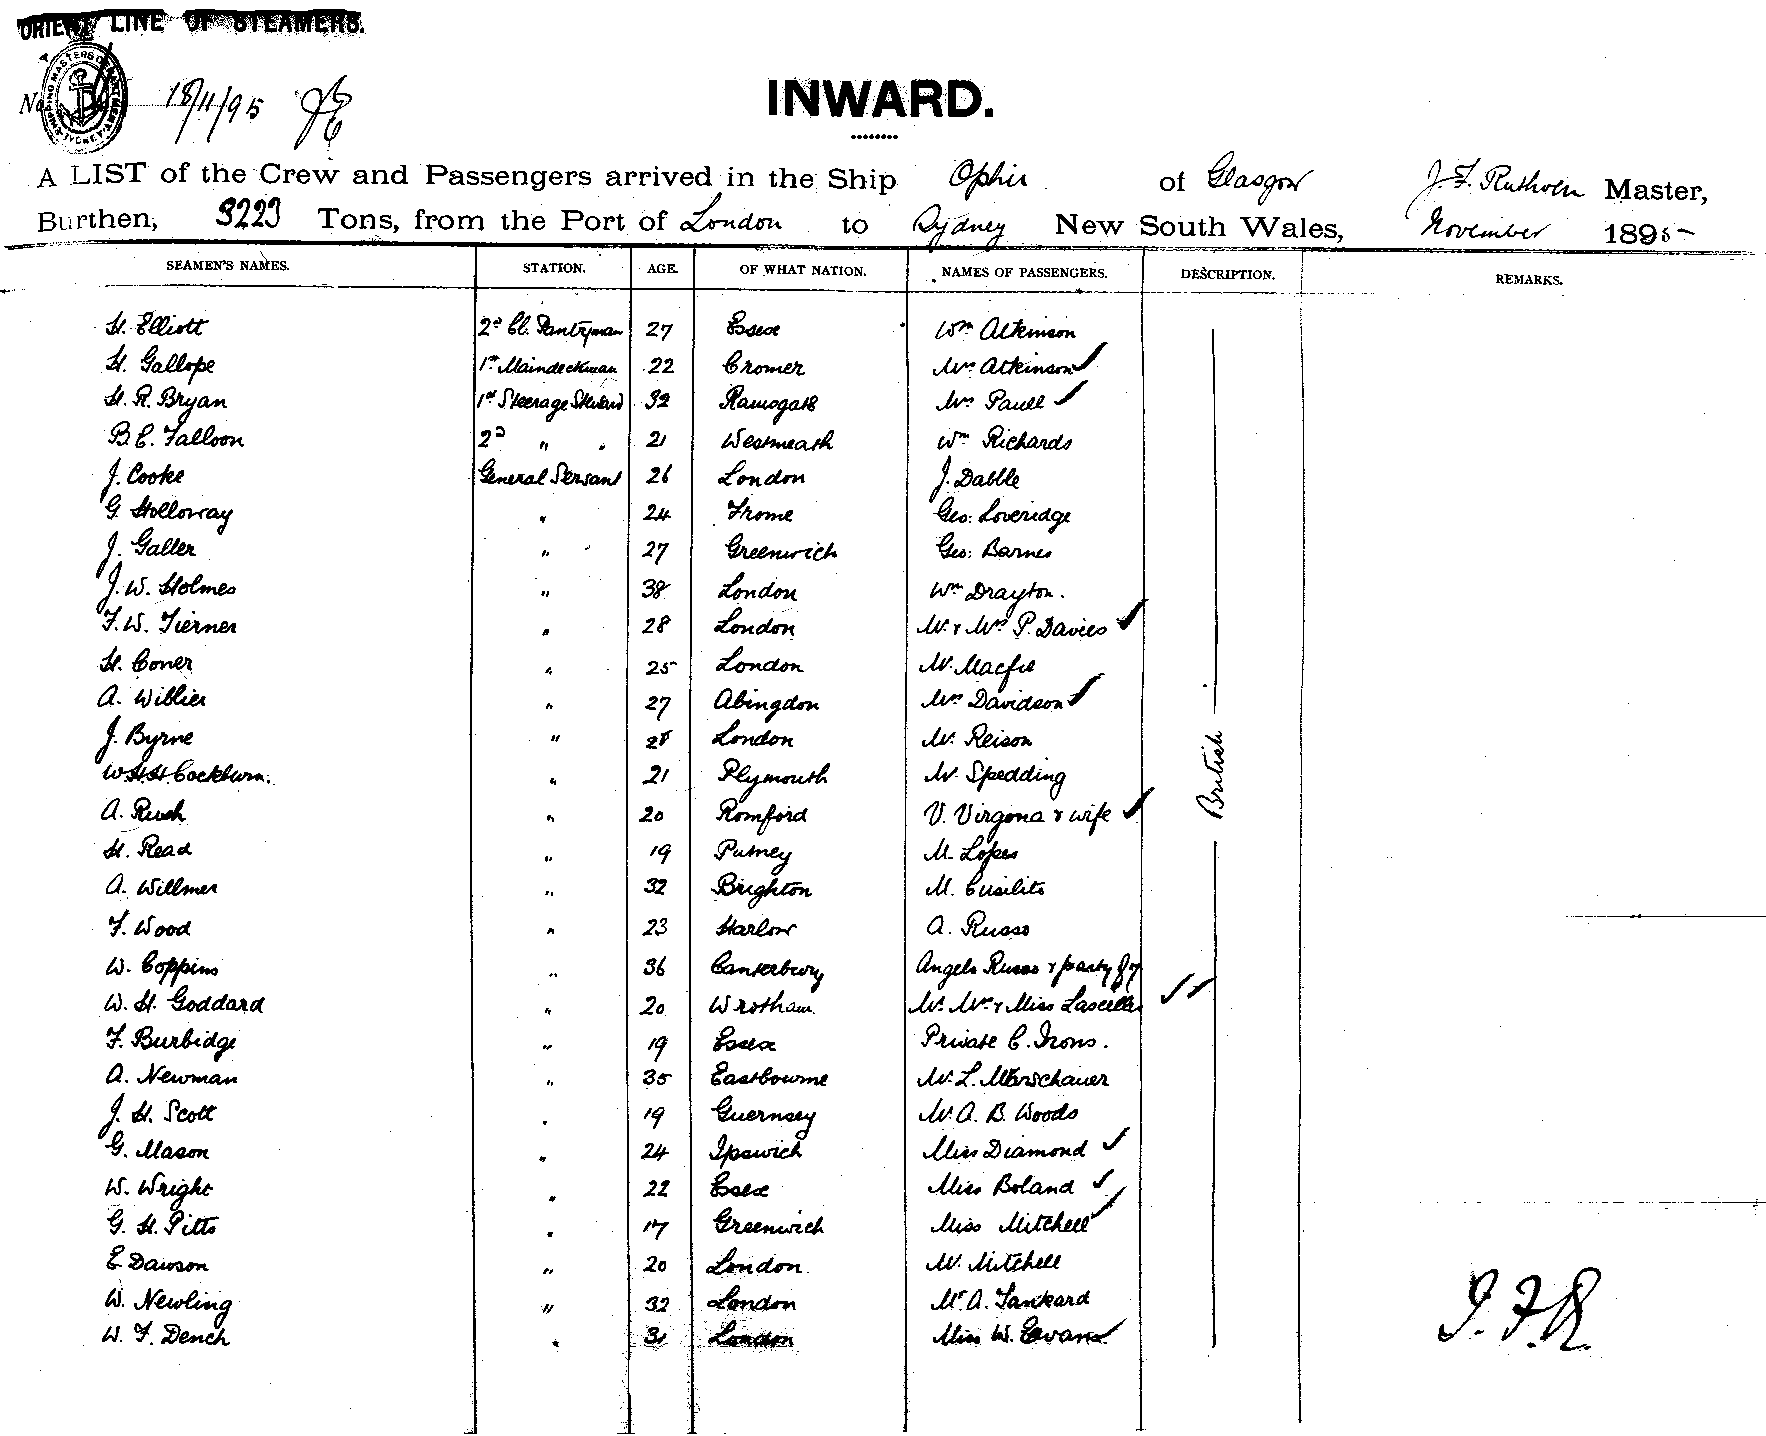 ORIENT LINE OF STEAMERS.
No 18/11/95
INWARD.
A LIST of the Crew and Passengers arrived in the Ship Ophir of Glasgow J. F. Ruthven Master,
Burthen, 3223 Tons, from the Port of London to Sydney New South Wales, November 1895
SEAMEN'S NAMES. STATION. AGE. OF WHAT NATION. NAMES OF PASSENGERS. DESCRIPTION. REMARKS.
H. Elliott 2nd Cl. Pantryman 27 Essex Wm Atkinson
H. Gallope 1st Maindeckman 22 Cromer Mrs Atkinson
H. R. Bryan 1st Steerage Steward 32 Ramsgate Mrs Paull
B. E. Falloon 2nd " " 21 Westmeath Wm Richards
J. Cooke General Servant 26 London J. Dabble
G. Holloway " 24 Frome Geo: Loveridge
J. Galler " 27 Greenwich Geo: Barnes
J. W. Holmes " 38 London Wm Drayton.
F. W. Tierner " 28 London Mr & Mrs P. Davies
H. Coner " 25 London Mr. Macfie
A. Wiblier " 27 Abingdon Mrs Davidson
J. Byrne " 28 London Mr. Reison
W. H. H. Cockburn. " 21 Plymouth Mr. Spedding
British
A. Rush " 20 Romford V. Virgona & wife
H. Read " 19 Putney M. Lopes
A. Willmer " 32 Brighton M. Cusilito
F. Wood " 23 Harlow A. Russo
W. Coppins " 36 Canterbury Angelo Russo & party of 7
W. H. Goddard " 20 Wrotham Mr. Mrs & Miss Lascelles
F. Burbidge " 19 Essex Private C. Irons.
A. Newman " 35 Eastbourne Mr. L. Marschauer
J. H. Scott " 19 Guernsey Mr. A. B. Woods
G. Mason " 24 Ipswich Miss Diamond
W. Wright " 22 Essex Miss Boland
G. H. Pitts " 17 Greenwich Miss Mitchell
E. Dawson " 20 London Mr. Mitchell
W. Newling " 32 London Mr A. Tankard
W. F. Dench " 31 London Miss W. Evans
J. F. R.